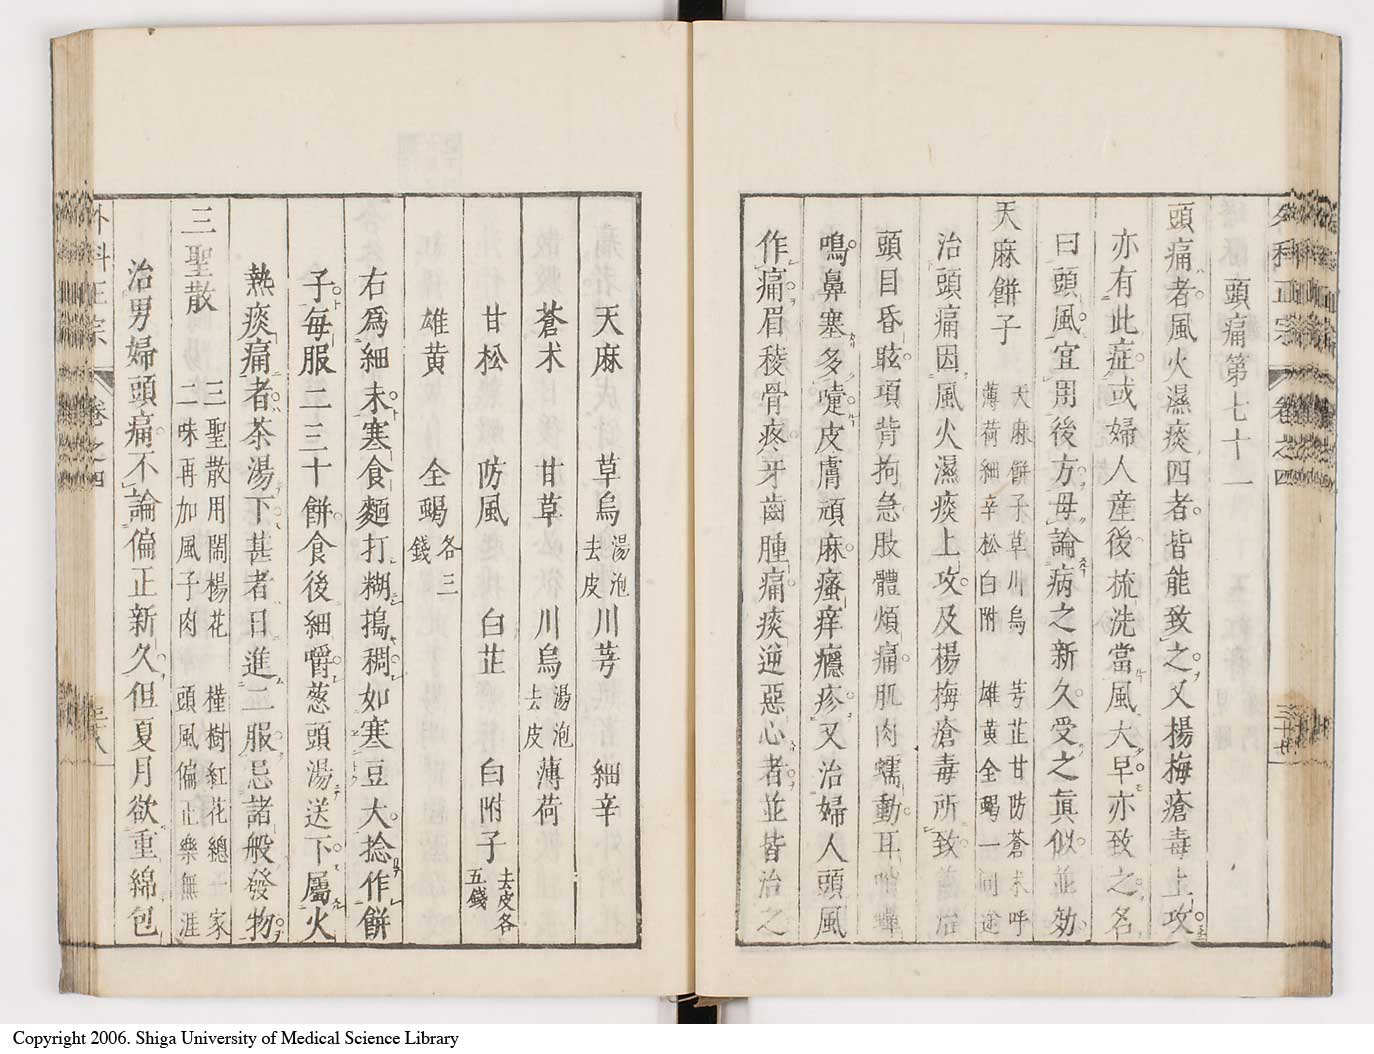 外科正宗 卷之四 三十七
頭痛第七十一
頭痛者風火濕痰四者皆能致之又楊梅瘡毒上攻
亦有此症或婦人産後梳洗當風大早亦致之名
曰頭風宜用後方毋論病之新久受之眞似並効
天麻餅子 天麻餅子草川烏 芎芷甘防蒼朮呼
薄荷細辛松白附 雄黄全蝎一同途
治頭痛因風火濕痰上攻及楊梅瘡毒所致
頭目昏眩項背拘急肢體煩痛肌肉蠕動耳
鳴鼻塞多嚏皮膚頑麻瘙痒癮疹又治婦人頭風
作痛眉稜骨疼牙齒腫痛痰逆惡心者並皆治之
天麻 草烏湯泡去皮 川芎 細辛
蒼朮 甘草 川烏湯泡去皮 薄荷
甘松 防風 白芷 白附子去皮各五錢
雄黄 全蝎各三錢
右爲細末寒食麵打糊搗稠如寒豆大捻作餅
子每服二三十餅食後細嚼葱頭湯送下屬火
熱痰痛者茶湯下甚者日進二服忌諸般發物
三聖散 三聖散用閙楊花 槿樹紅花總一家
二味再加風子肉 頭風偏正樂無涯
治男婦頭痛不論偏正新久但夏月欲重綿包
外科正宗 卷之四
Copyright 2006. Shiga University of Medical Science Library